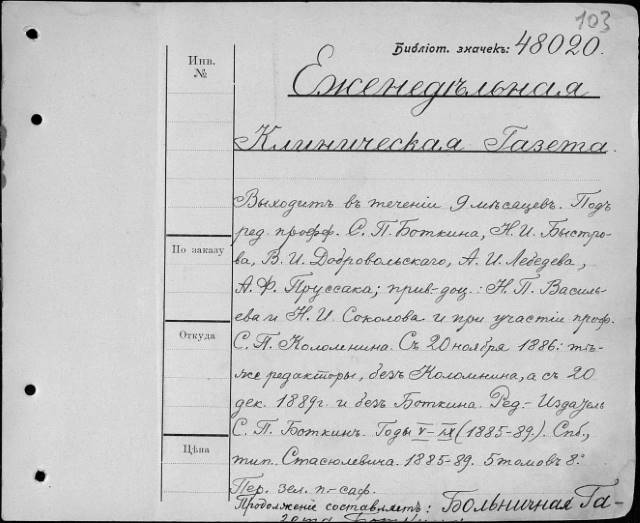 103
Библіот. значекъ: 48020.
Инв. №
Еженедѣльная
Клиническая Газета.
Выходитъ въ теченіи 9 мѣсацевъ. Подъ
ред. профф. С. П. Боткина, Н. И. Быстро-
ва, В. И. Добровольскаго, А. И. Лебедева,
По заказу
А. Ф. Пруссака; прив-доц.: Н. П. Василь-
ева и Н. И. Соколова и при участіи проф.
Откуда
С. П. Коломнина. Съ 20 ноября 1886: тѣ-
же редакторы, безъ Коломнина, а съ 20
дек. 1889г. и безъ Боткина. Ред.- Издатель
С. П. Боткинъ. Годы V-IX (1885-89.). Спб.,
Цѣна
тип. Стасюлевича. 1885-89. 5 томовъ 8.º
Пер. зел. п-саф.
Продолженіе составляетъ: Больничная Га-
зета Боткина